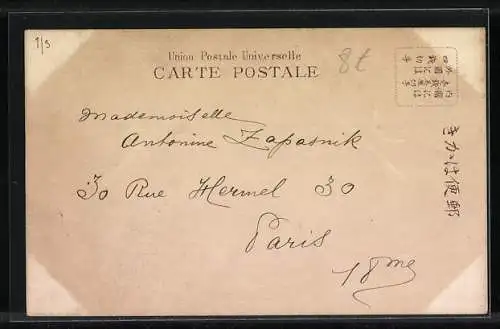 1/3
Union Postale Universelle
CARTE POSTALE
8t
Mademoiselle
Antonine Zapasnik
30 Rue Hermel 30
Paris
18me
郵便はかき